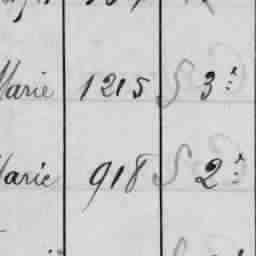 Marie 1215 S 3
Marie 918 S 2